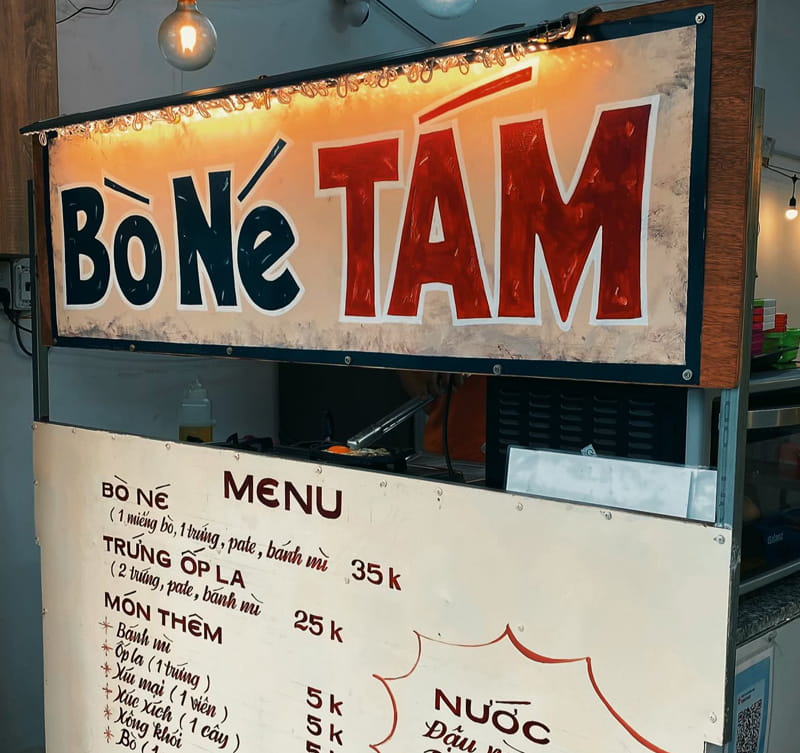 Bò Né TÁM
MENU
BÒ NÉ
(1 miếng bò, 1 trứng, pate, bánh mì 35k
TRỨNG ỐP LA
(2 trứng, pate, bánh mì 25k
MÓN THÊM
* Bánh mì 5k
* Ốp la (1 trứng) 5k
* Xíu mại (1 viên)
* Xúc xích (1 cây)
* Xông khói
* Bò (1
NƯỚC
Đậu